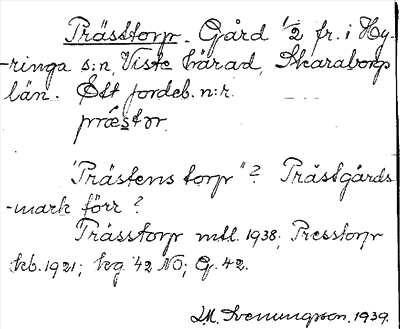 Prässtorp. Gård 1/2 fr. i Hy-
-ringa s:n, Viste härad, Skaraborgs
län. Ett jordeb. n:r.
præstɔr.
"Prästens torp"? Prästgårds
-mark förr?
Prässtorp mtl. 1938; Presstorp
kb. 1921; kg. 42 NO; G. 42.
J.M. Svenungson. 1939.